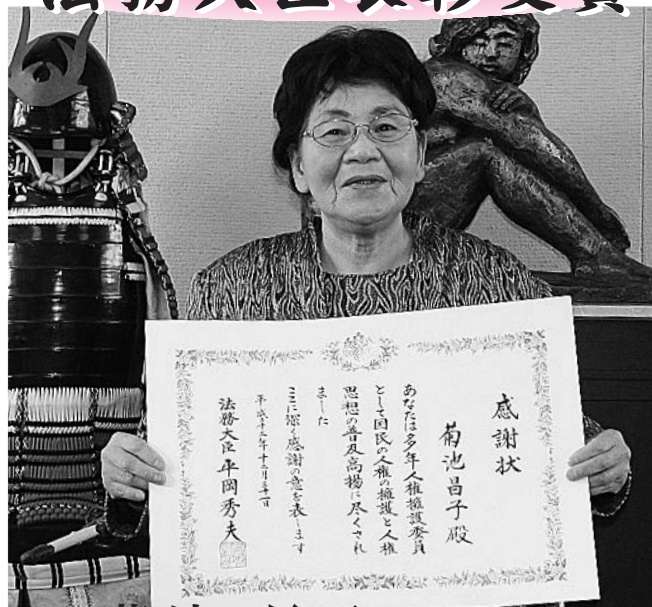 法務大臣表彰受賞
感謝状
菊池昌子殿
あなたは多年人権擁護委員
として国民の人権の擁護と人権
思想の普及高揚に尽くされ
ました
ここに深く感謝の意を表します
平成二十三年十二月三十一日
法務大臣 平岡秀夫